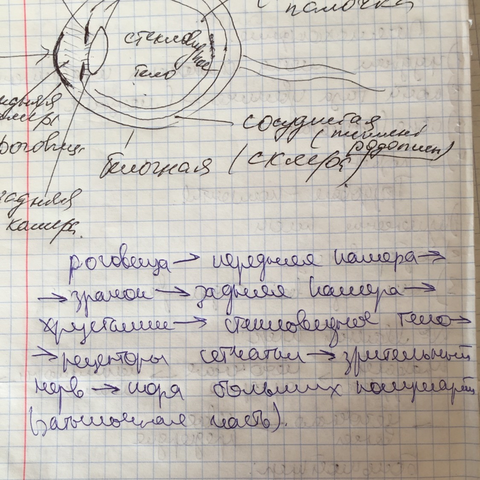 палочка
стекловидное
тело
передняя
камера
роговица
задняя
камера
сосудистая
белочная (склера)
роговица → передняя камера →
→ зрачок → задняя камера →
хрусталик → стекловидное тело →
→ рецепторы сетчатки → зрительный
нерв → кора больших полушарий
(затылочная часть).